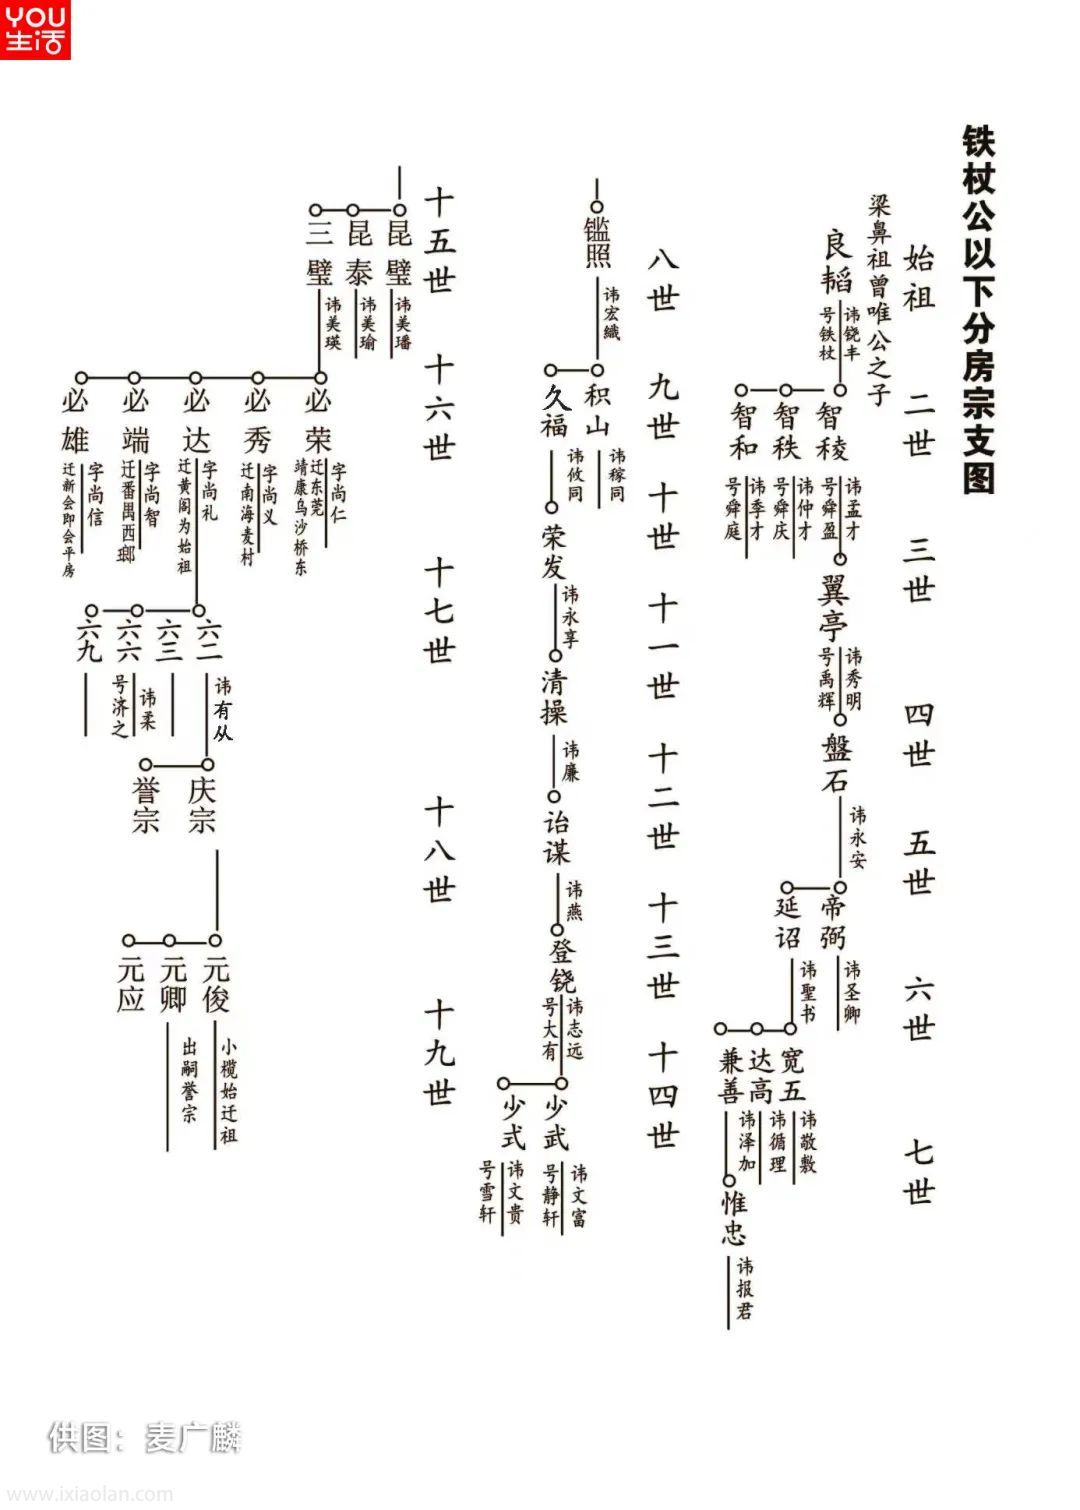 YOU
生活
铁杖公以下分房宗支图
始祖
二世
三世
四世
五世
六世
七世
梁鼻祖曾唯公之子
良韬
讳铙丰
号铁杖
智稜
智秩
智和
讳孟才
号舜盈
讳仲才
号舜庆
讳季才
号舜庭
翼亭
讳秀明
号禹辉
盤石
讳永安
帝弼
延诏
讳圣卿
讳聖书
宽五
达高
兼善
讳敬敷
讳循理
讳泽加
惟忠
讳报君
八世
九世
十世
十一世
十二世
十三世
十四世
鑑照
讳宏織
积山
久福
讳稼同
讳攸同
荣发
讳永享
清操
讳廉
诒谋
讳燕
登铙
讳志远
号大有
少武
少式
讳文富
号静轩
讳文贵
号雪轩
十五世
十六世
十七世
十八世
十九世
昆璧
昆泰
三璧
讳美璠
讳美瑜
讳美瑛
必荣
必秀
必达
必端
必雄
字尚仁
迁东莞
靖康乌沙桥东
字尚义
迁南海麦村
字尚礼
迁黄阁为始祖
字尚智
迁番禺西瑯
字尚信
迁新会即会平房
六二
六三
六六
六九
讳有从
讳柔
号济之
庆宗
誉宗
元俊
元卿
元应
小榄始迁祖
出嗣誉宗
供图：麦广麟
www.ixiaolan.com